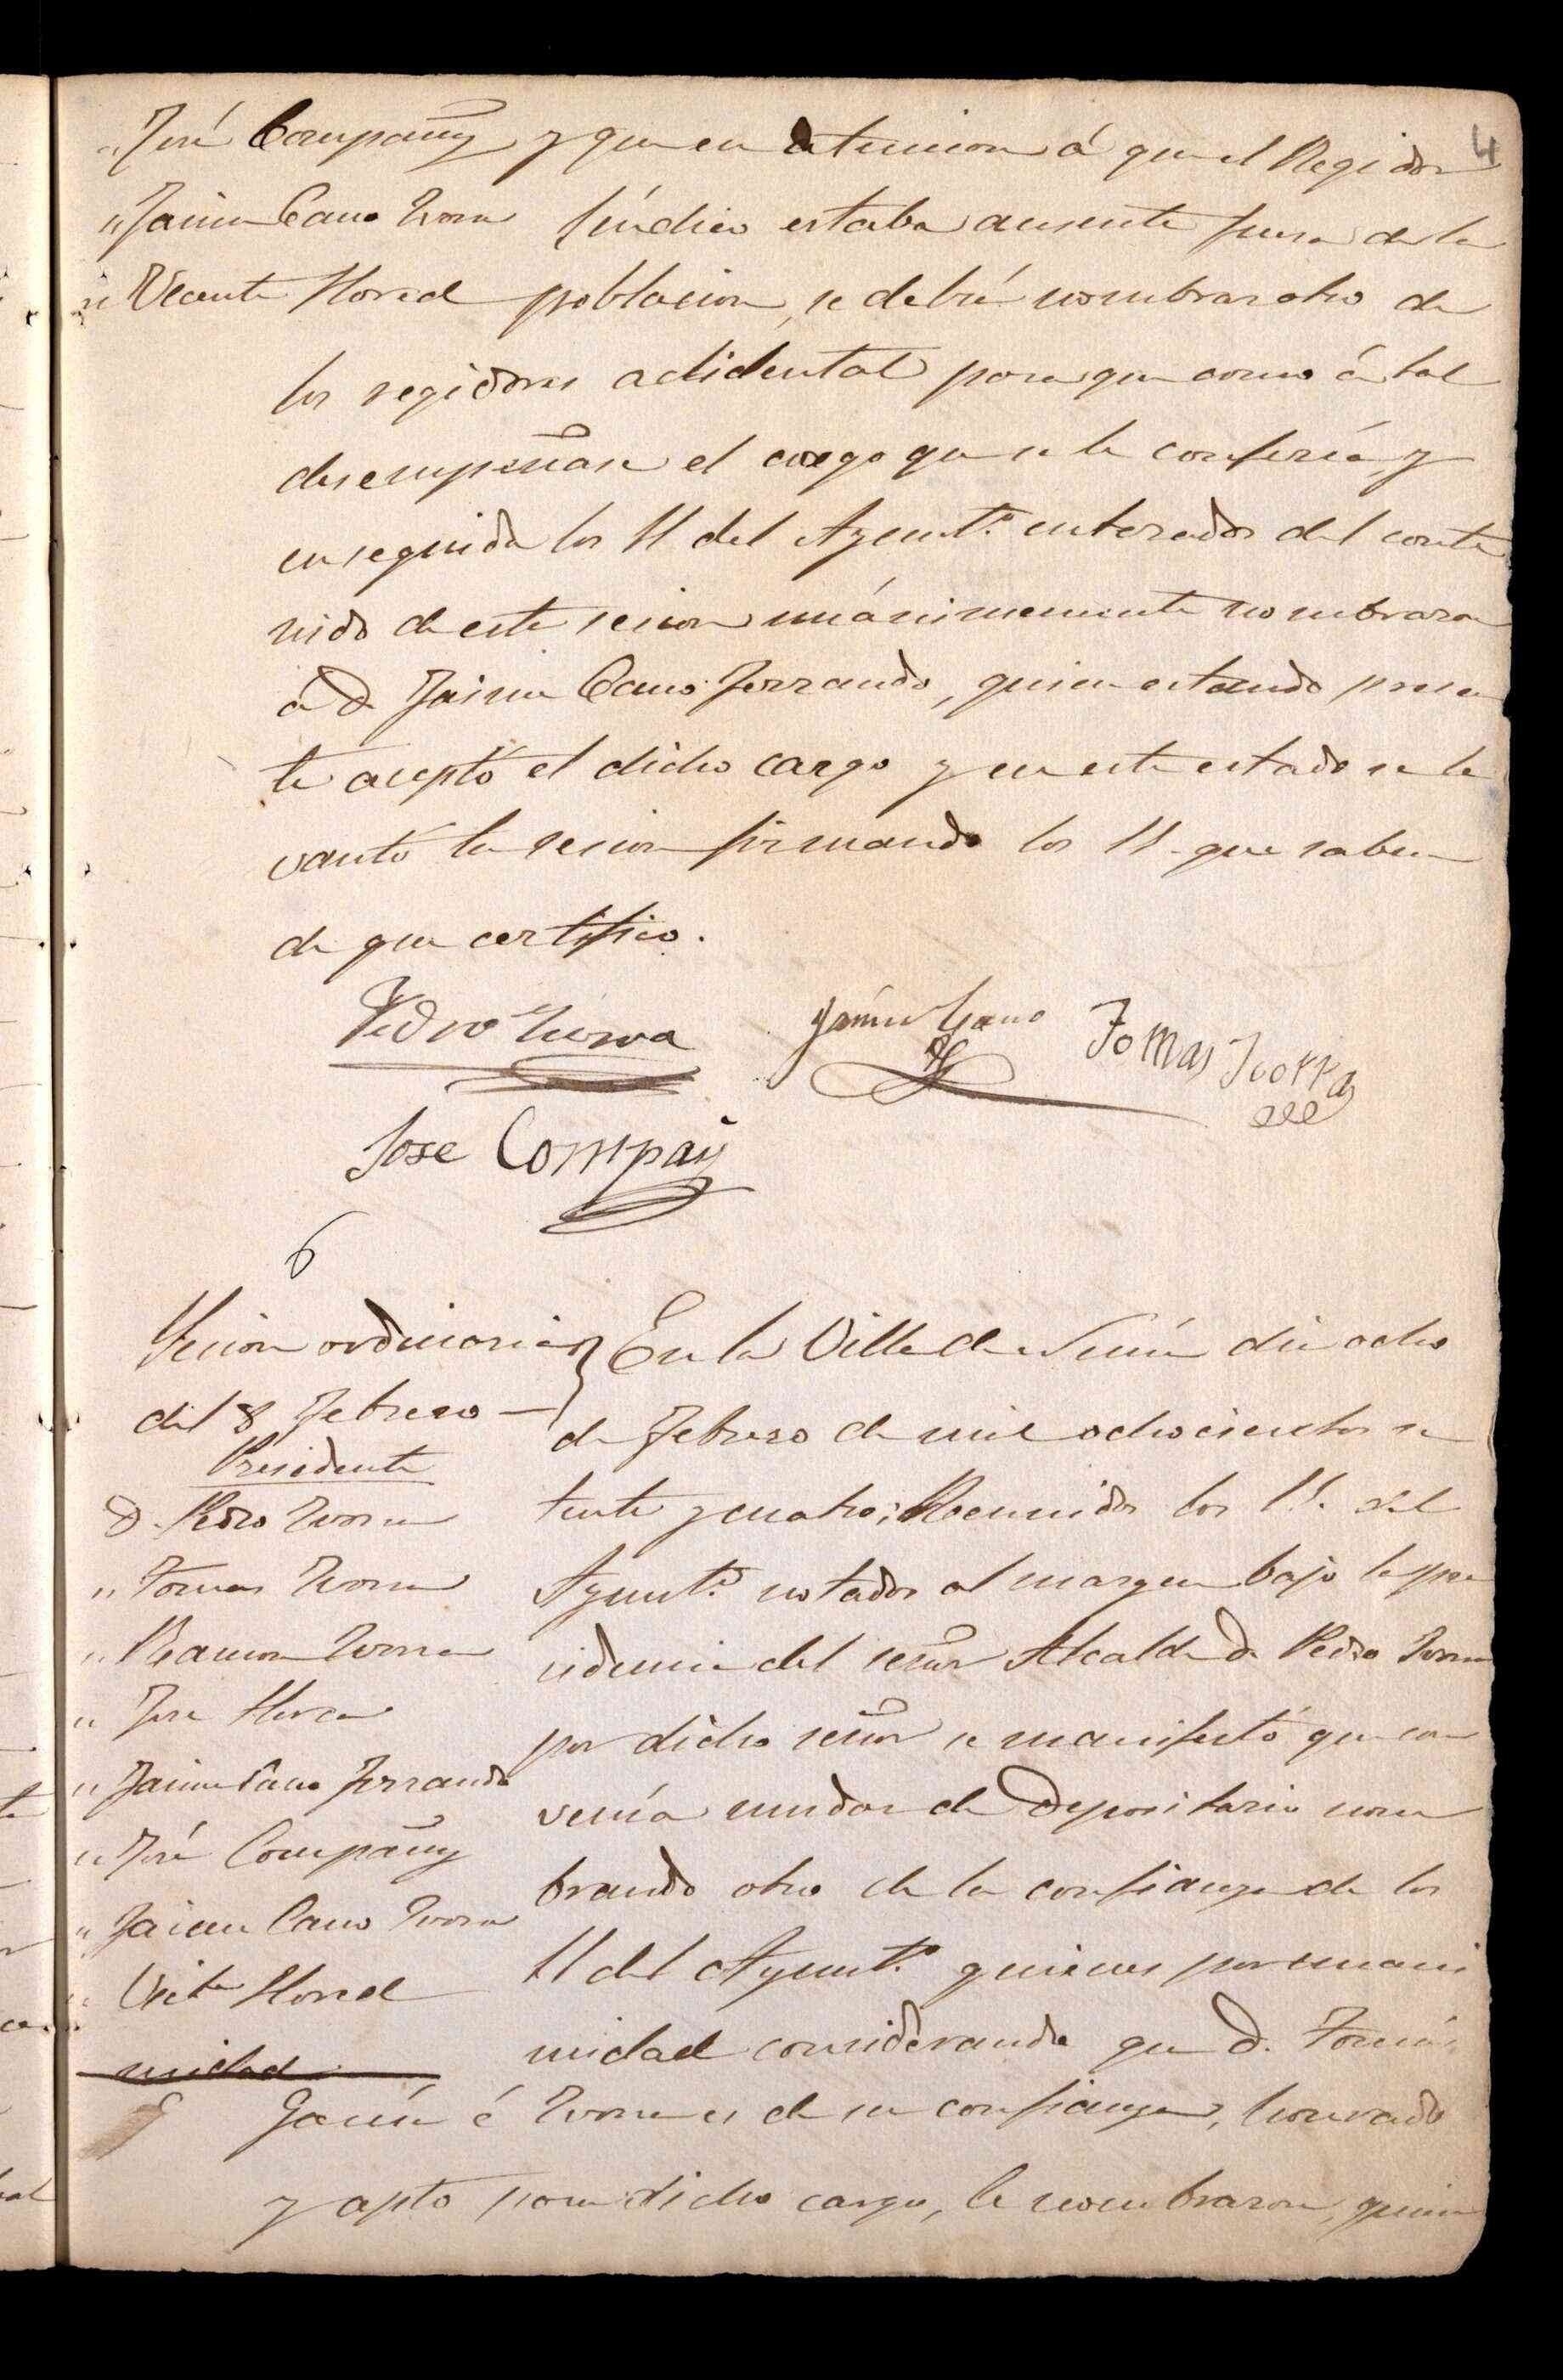 4
" José Compañy y que en atencion á que el Regidor
" Jaime Cano Ivorra Síndico estaba ausente fuera de la
" Vicente Llored poblacion, se debia nombrar otro de
los regidores acidental para que como á tal
desempeñase el cargo que se le conferia, y
enseguida los SS del Ayunt.º enterados del conte
nido de este sesion unánimemente nombraron
á D. Jaime Cano Ferrando, quien estando presen
te aceptó el dicho cargo y en este estado se le
vantó la sesion firmando los SS. que saben
de que certifico.
Pedro Livorra
Jaime Cano
Tomas Ivorra
Jose Compañ
6
Sesion ordinaria
del 8 Febrero
Presidente
D. Pedro Ivorra
" Tomas Ivorra
" Ramon Ivorra
" Jose Llorca
" Jaime Cano Ferrando
" José Compañy
" Jaime Cano Ivorra
" Vict.e Llored
nidad
En la Villa de dia ocho
de Febrero de mil ochocientos se
tenta y cuatro; Reunidos los SS. del
Ayunt.º notados al margen bajo la pre
sidencia del señor Alcalde D. Pedro Ivorra
por dicho señor se manifestó que con
venía mudar de Depositario nom
brando otro de la confianza de los
SS del Ayunt.º quienes por unani
midad considerando que D. Tomás
García é Ivorra es de su confianza, honrado
y apto para dicho cargo, le nombraron, quien